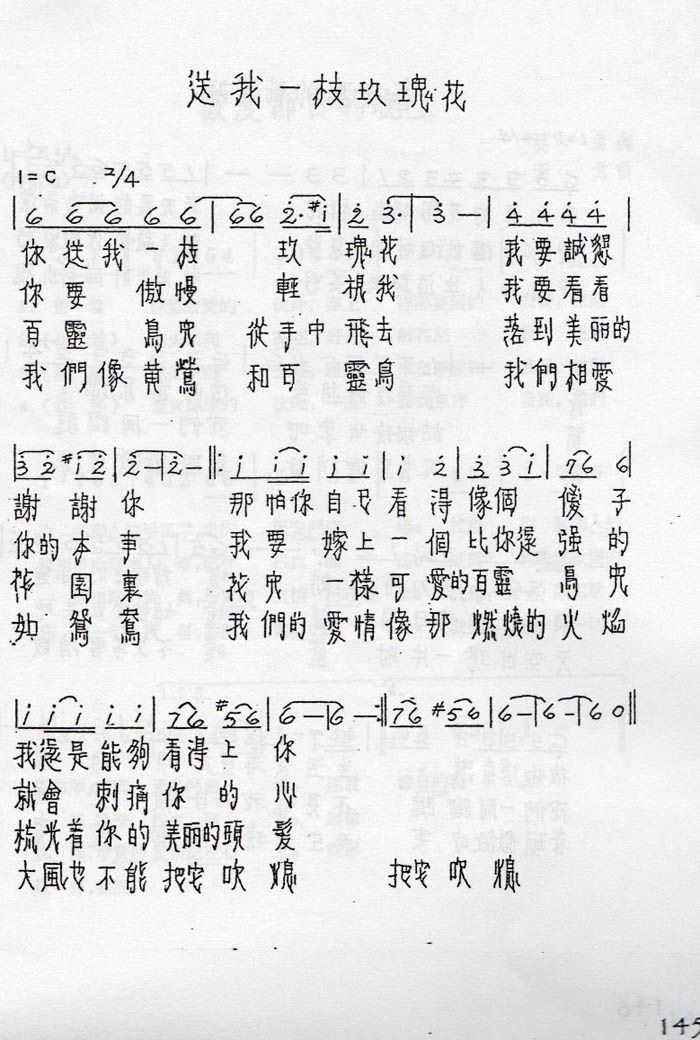 送我一枝玫瑰花
1=C 2/4
|6 6 6 6 6|6 6 2·#|2 3·|3 —|4 4 4 4|
你從我一枝 玫 瑰花 我要誠懇
你要 傲慢 輕 視我 我要看看
百靈 鳥兒 從手中 飛去 落到美丽的
我們像黄鶯 和百 靈鳥 我們相愛
|3 2 #1 2|2—|2—|: 1 1 1 1 1|1 2|3 3 1|7 6 6
謝 謝 你 那怕你自己看 得像個 傻子
你的本 事 我要 嫁上一個比你還强的
花 園 裏 花兒 一樣可愛的百靈 鳥兒
如 鴛 鴦 我們的愛情像那燃燒的火焰
|1 1 1 1 1|7 6 #5 6|6—|6—:|7 6 #5 6|6—|6—|6 0||
我還是能夠看得上 你
就會 刺痛你 的 心
梳光着你的美丽的頭 髮
大風也不能把它吹 熄 把它吹 熄
145